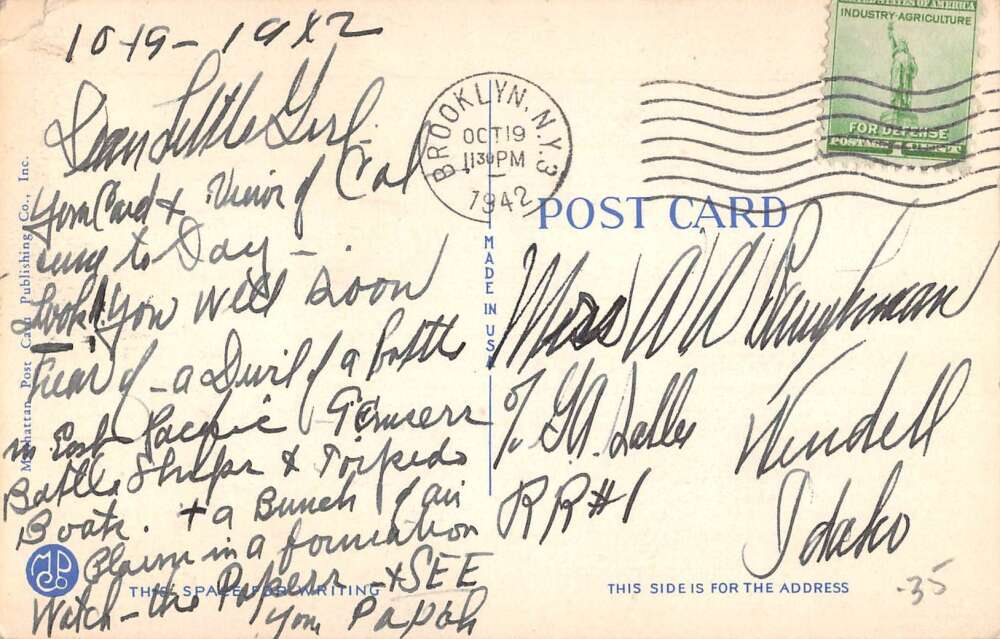 10-19-1942
Dear Little Girl.
Your Card & View of Cal
came to Day -
Look! You Will Soon
Hear of - a Devil of a battle
in East Pacific
Battle Ships & Torpedo
Boats. + a Bunch of air
in a formation
Watch - the Papers - + SEE
Your Papah
Manhattan Post Card Publishing Co., Inc.
MADE IN USA
THIS SPACE FOR WRITING
BROOKLYN, N.Y. 3
OCT 19
11 30 PM
1942
UNITED STATES OF AMERICA
INDUSTRY·AGRICULTURE
FOR DEFENSE
POSTAGE 1 CENT 1
POST CARD
Miss W A Baughman
c/o G A
RR#1
Wendell
Idaho
THIS SIDE IS FOR THE ADDRESS
.35